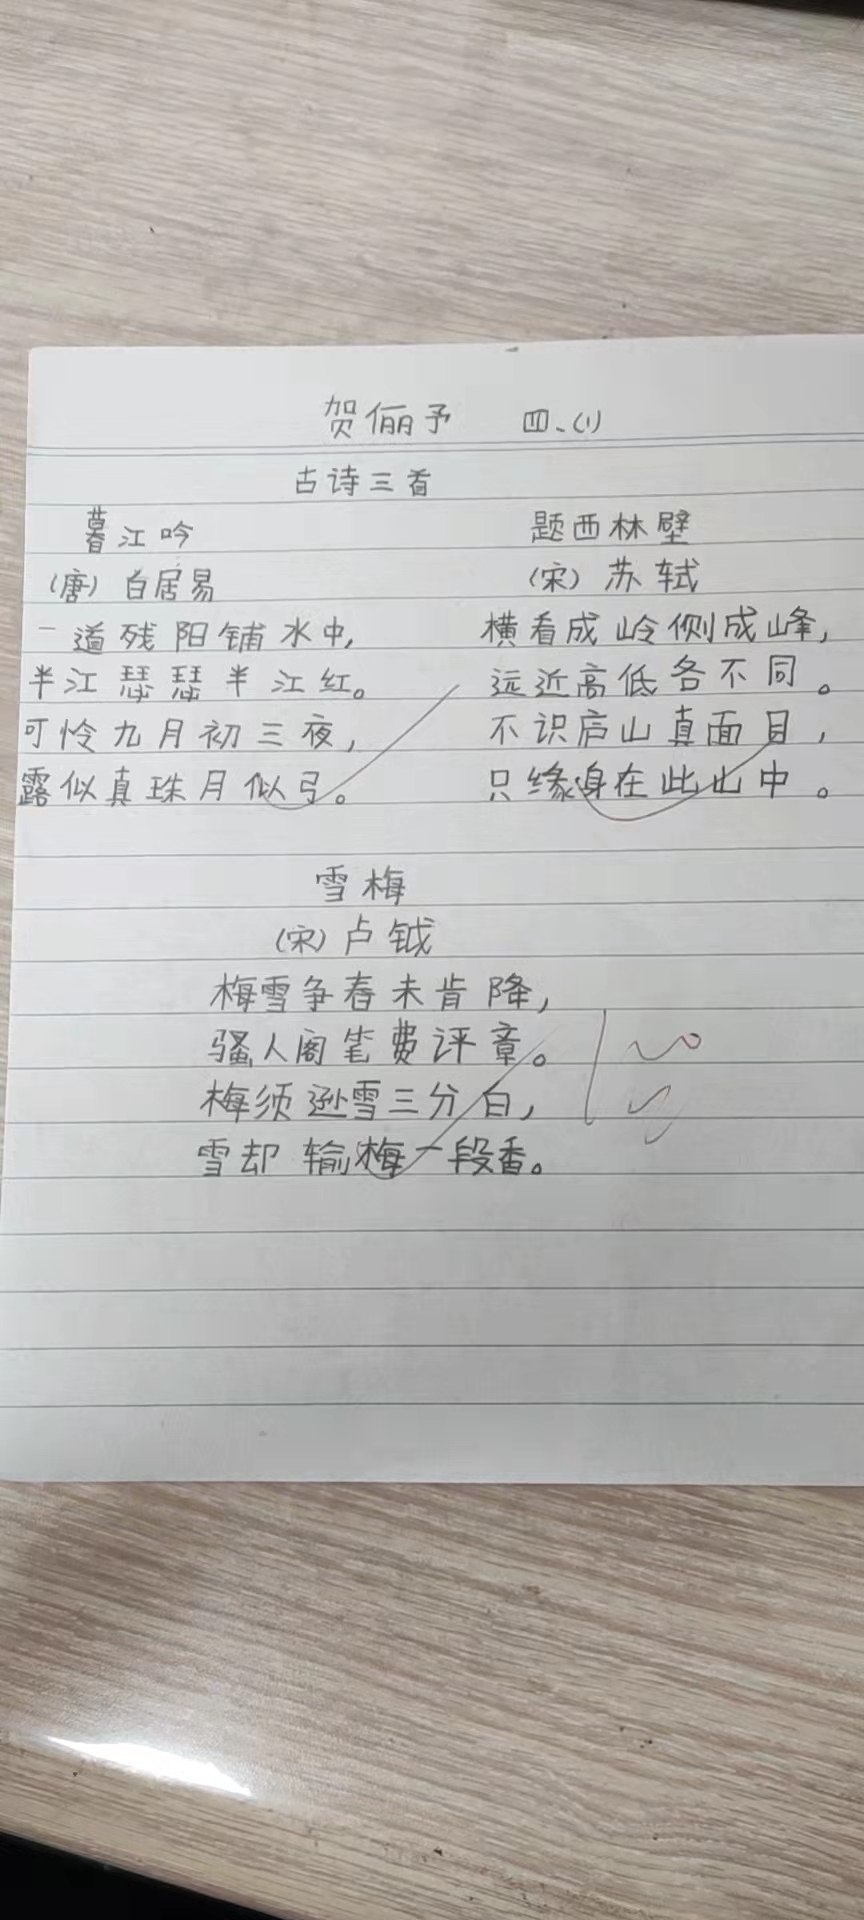 贺俪予 四、(1)
古诗三首
暮江吟
(唐) 白居易
一道残阳铺水中,
半江瑟瑟半江红。
可怜九月初三夜,
露似真珠月似弓。
题西林壁
(宋) 苏轼
横看成岭侧成峰,
远近高低各不同。
不识庐山真面目,
只缘身在此山中。
雪梅
(宋) 卢钺
梅雪争春未肯降,
骚人阁笔费评章。
梅须逊雪三分白,
雪却输梅一段香。